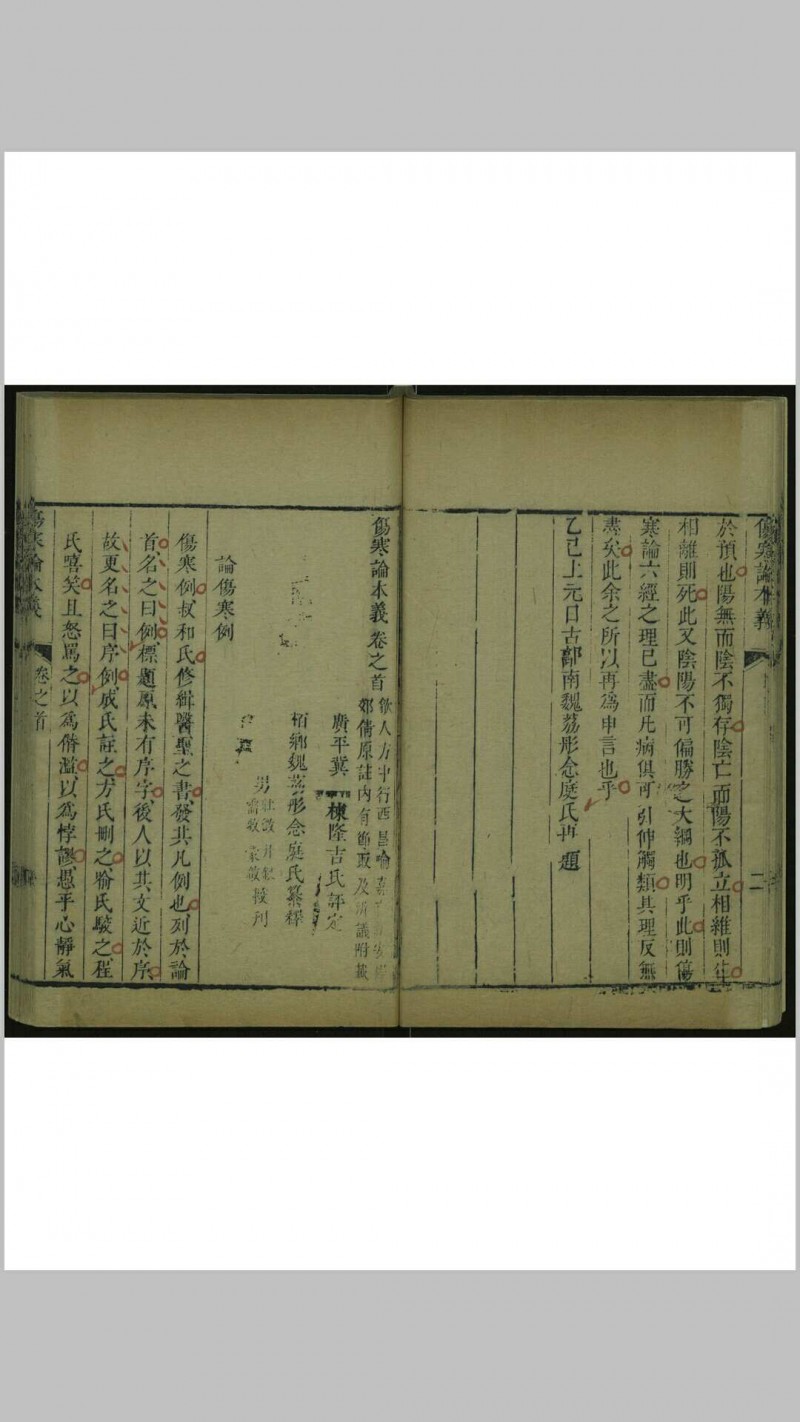 傷寒論本義
二
於預也陽無而陰不獨存陰亡而陽不孤立相維則生
相離則死此又陰陽不可偏勝之大綱也明乎此則傷
寒論六經之理已盡而凡病俱可引伸觸類其理反無
盡矣此余之所以再為申言也乎
乙巳上元日古鄗南魏荔彤念庭氏再題
傷寒論本義卷之首
歙人方中行西昌喻嘉
郊倩原註內有節取及辨議附載
廣平冀棟隆吉氏評定
栢鄉魏荔彤念庭氏纂釋
男
校刊
論傷寒例
傷寒例叔和氏修緝醫聖之書發其凡例也列於論
首名之曰例標題原未有序字後人以其文近於序
故更名之曰序例成氏註之方氏刪之喻氏駁之程
氏嘻笑且怒罵之以為僭濫以為悖謬愚乎心靜氣
傷寒論本義
卷之首